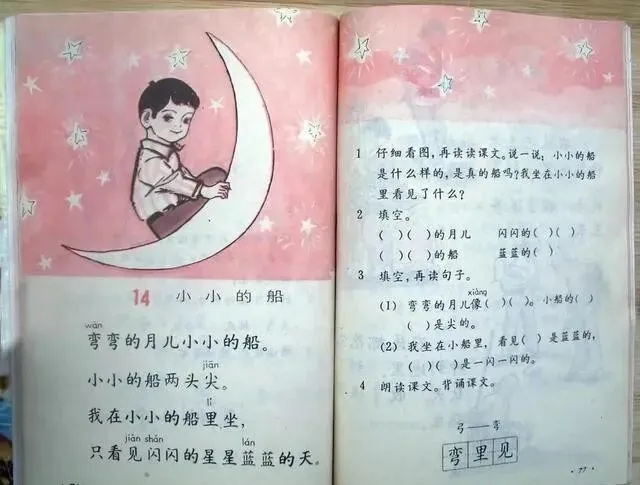 14 小小的船
wān
弯弯的月儿小小的船。
jiān
小小的船两头尖。
lǐ
我在小小的船里坐,
jiàn shǎn lán
只看见闪闪的星星蓝蓝的天。
1 仔细看图,再读读课文。说一说:小小的船
是什么样的,是真的船吗?我坐在小小的船
里看见了什么?
2 填空。
( )( )的月儿 闪闪的( )( )
( )( )的船 蓝蓝的( )
3 填空,再读句子。
xiàng
(1) 弯弯的月儿像( )( )。小船的( )
( )是尖的。
(2) 我坐在小船里,看见( )是蓝蓝的,
( )( )是一闪一闪的。
4 朗读课文。背诵课文。
弓——弯
弯里见
· 77 ·